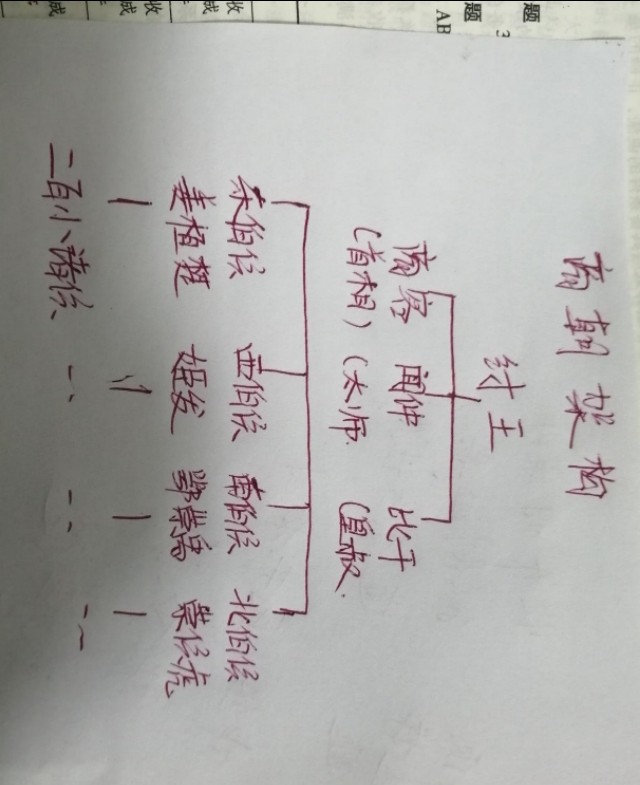 商朝架构
纣王
商容 闻仲 比干
(首相) (太师 (皇叔.
东伯侯 西伯侯 南伯侯 北伯侯
姜桓楚 姬发 鄂崇禹 崇侯虎
二百小诸侯
题
题
AB
3
收
成
收
成